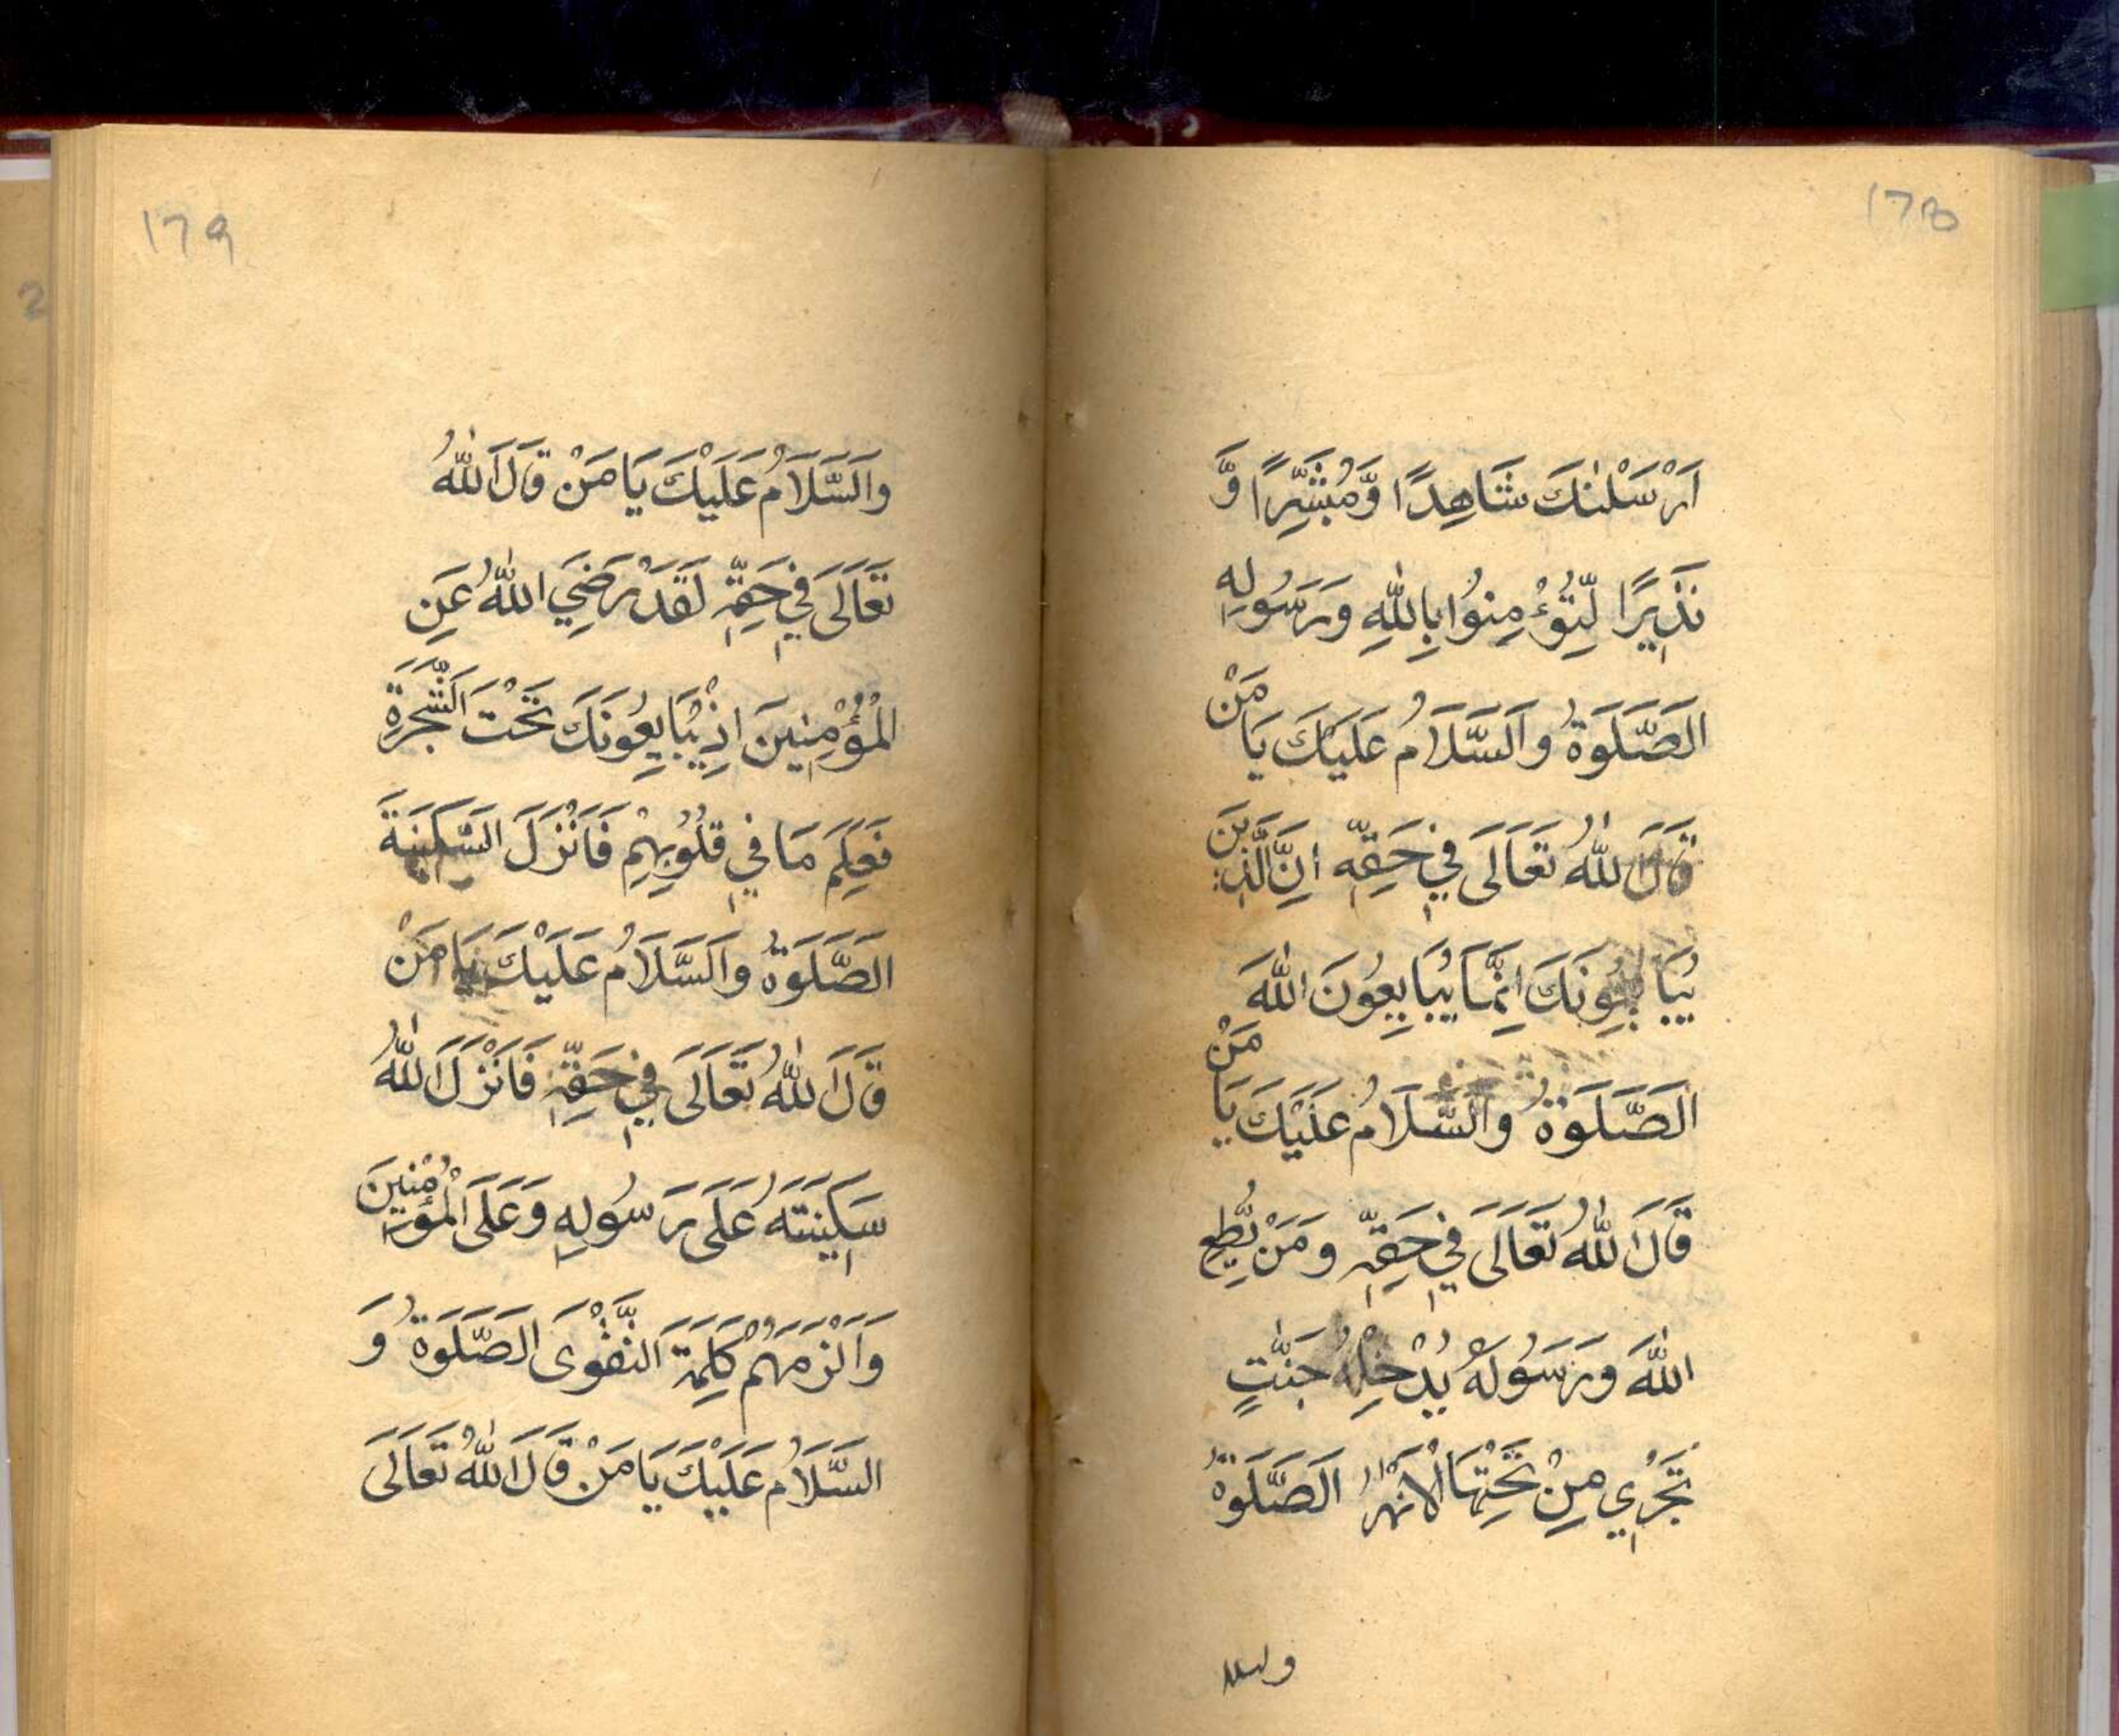 178
اَرْسَلْنٰكَ شَاهِدًا وَّمُبَشِّرًا وَّ
نَذِيْرًا لِّتُؤْمِنُوا بِاللّٰهِ وَرَسُولِهِ
اَلصَّلَوةُ وَالسَّلَامُ عَلَيْكَ يَا مَنْ
قَالَ اللّٰهُ تَعَالَى فِي حَقِّهِ اِنَّ الَّذِينَ
يُبَايِعُونَكَ اِنَّمَا يُبَايِعُونَ اللّٰهَ
اَلصَّلَوةُ وَالسَّلَامُ عَلَيْكَ يَا مَنْ
قَالَ اللّٰهُ تَعَالَى فِي حَقِّهِ وَمَنْ يُّطِعِ
اللّٰهَ وَرَسُولَهُ يُدْخِلْهُ جَنّٰتٍ
تَجْرِي مِنْ تَحْتِهَا الْاَنْهٰرُ اَلصَّلَوةُ
والسلا
179
وَالسَّلَامُ عَلَيْكَ يَا مَنْ قَالَ اللّٰهُ
تَعَالَى فِي حَقِّهِ لَقَدْ رَضِيَ اللّٰهُ عَنِ
الْمُؤْمِنِينَ اِذْ يُبَايِعُونَكَ تَحْتَ الشَّجَرَةِ
فَعَلِمَ مَا فِي قُلُوبِهِمْ فَاَنْزَلَ السَّكِينَةَ
اَلصَّلَوةُ وَالسَّلَامُ عَلَيْكَ يَا مَنْ
قَالَ اللّٰهُ تَعَالَى فِي حَقِّهِ فَاَنْزَلَ اللّٰهُ
سَكِينَتَهُ عَلَى رَسُولِهِ وَعَلَى الْمُؤْمِنِينَ
وَاَلْزَمَهُمْ كَلِمَةَ التَّقْوَى اَلصَّلَوةُ وَ
السَّلَامُ عَلَيْكَ يَا مَنْ قَالَ اللّٰهُ تَعَالَى